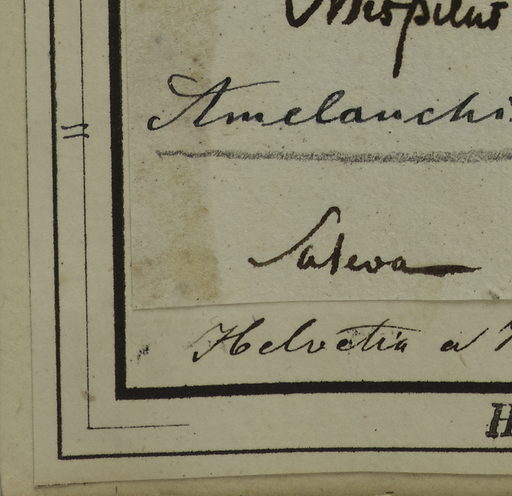 Mespilus
Amelanchi
=
Saleva
Helvetia a
H